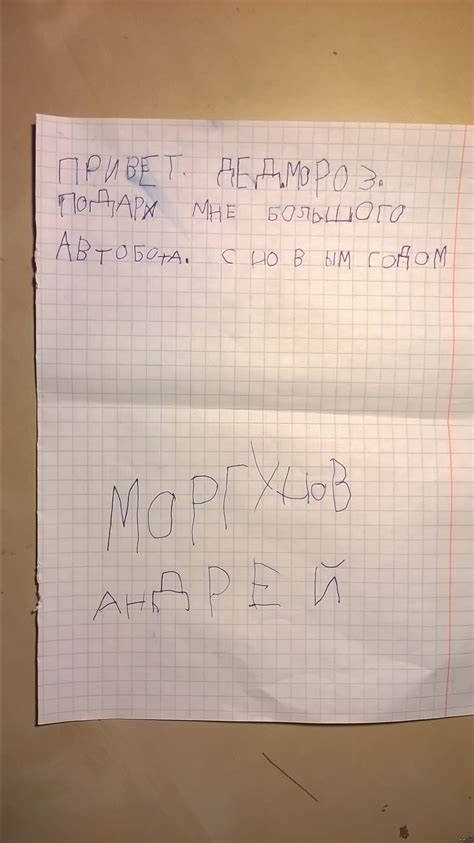 ПРИВЕТ. ДЕДМОРОЗ.
ПОДАРИ МНЕ БОЛЬШОГО
АВТОБОТА. С НОВЫМ ГОДОМ
МОРГУНОВ
АНДРЕЙ